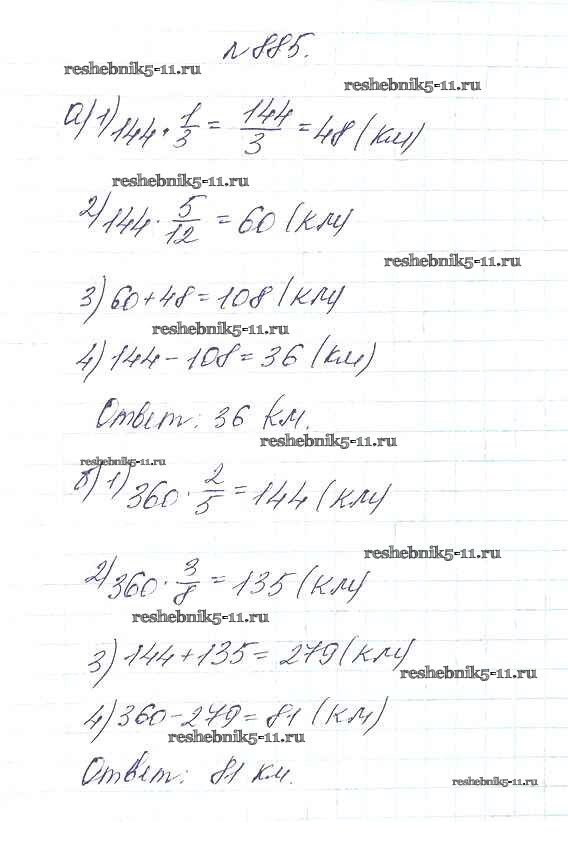 №885.
reshebnik5-11.ru
reshebnik5-11.ru
а) 1) 144 · 1/3 = 144/3 = 48 (км)
reshebnik5-11.ru
2) 144 · 5/12 = 60 (км)
reshebnik5-11.ru
3) 60+48=108 (км)
reshebnik5-11.ru
4) 144-108=36 (км)
Ответ: 36 км.
reshebnik5-11.ru
reshebnik5-11.ru
б) 1) 360 · 2/5 = 144 (км)
reshebnik5-11.ru
2) 360 · 3/8 = 135 (км)
reshebnik5-11.ru
3) 144+135=279 (км)
reshebnik5-11.ru
4) 360-279=81 (км)
reshebnik5-11.ru
Ответ: 81 км.
reshebnik5-11.ru